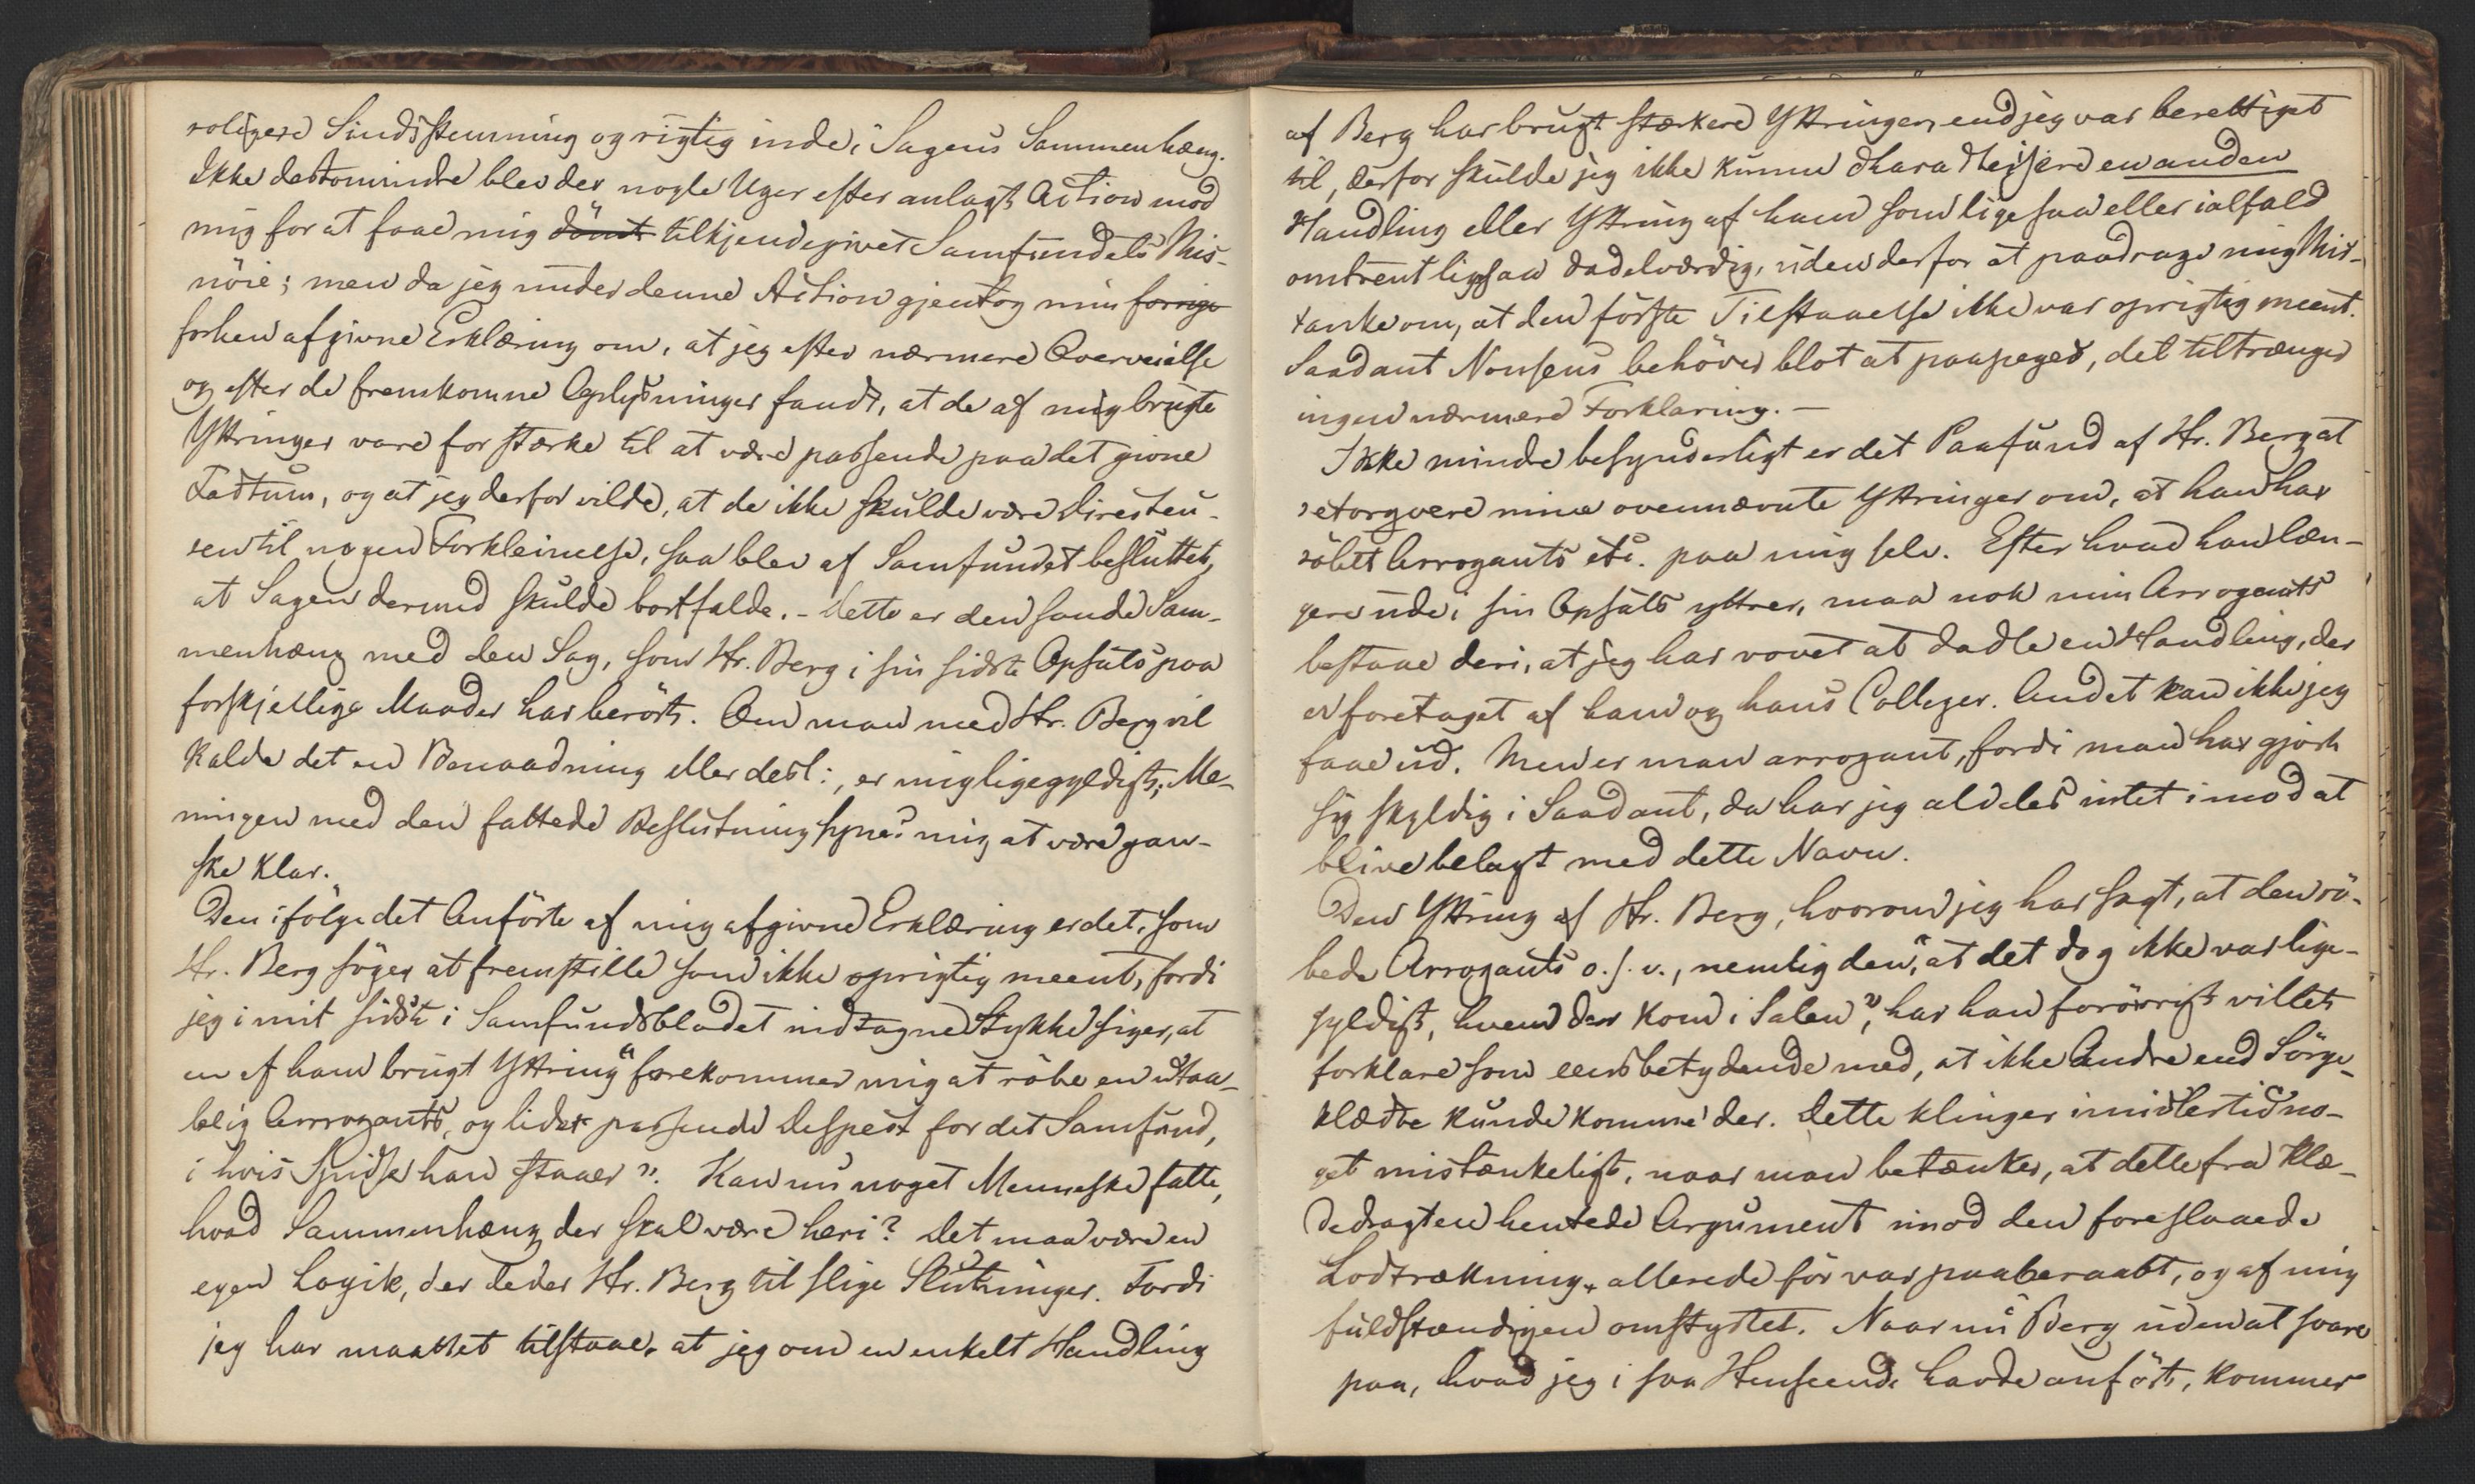 roligere Sindsstemning og rigtig inde i Sagens Sammenhæng.
Ikke destomindre blev der nogle Uger efter anlagt Action mod
mig for at faae mig dömt tilkjendegivet Samfundets Mis-
nöie; men da jeg under denne Action gjentog min forrige
forhen afgivne Erklæring om, at jeg efter nærmere Overveielse
og efter de fremkomne Oplysninger fandt, at de af mig brugte
Yttringer vare for stærke til at være passende paa det givne
Factum, og at jeg derfor vilde, at de ikke skulde være Directeu-
ren til nogen Forkleinelse, saa blev af Samfundet besluttet,
at Sagen dermed skulde bortfalde. - Dette er den sande Sam-
menhæng med den Sag, som Hr. Berg i sin sidste Opsats paa
forskjellige Maader har berört. Om man med Hr. Berg vil
kalde det en Benaadning eller desl:, er mig ligegyldigt; Me-
ningen med den fattede Beslutning synes mig at være gan-
ske klar.
Den ifölge det Anförte af mig afgivne Erklæring er det, som
Hr. Berg söger at fremstille som ikke oprigtig meent, fordi
jeg i mit sidste i Samfundsbladet indtagne Stykke siger, at
en af ham brugt Yttring "forekommer mig at röbe en utaa-
lelig Arrogants, og lidet passende Despect for det Samfund,
i hvis Spidse han staaer". Kan nu noget Menneske fatte,
hvad Sammenhæng der skal være heri? Det maa være en
egen Logik, der leder Hr. Berg til slige Slutninger. Fordi
jeg har maattet tilstaae, at jeg om en enkelt Handling
af Berg har brugt stærkere Yttringer, end jeg var berettiget
til, derfor skulde jeg ikke kunne charactheisere en anden
Handling eller Yttring af ham som ligesaa eller ialfald
omtrent ligesaa dadelværdig, uden derfor at paadrage mig Mis-
tanke om, at den förste Tilstaaelse ikke var oprigtig meent.
Saadant Nonsens behöver blot at paapeges, det tiltrænger
ingen nærmere Forklaring. -
Ikke mindre besynderligt er det Paafund af Hr. Berg at
retorqvere mine ovennævnte Yttringer om, at han har
röbet Arrogants etc. paa mig selv. Efter hvad han læn-
gere ude i sin Opsats yttrer, maa nok min Arrogants
bestaae deri, at jeg har vovet at dadle en Handling, der
er foretaget af ham og hans Colleger. Andet kan ikke jeg
faae ud. Men er man arrogant, fordi man har gjort
sig skyldig i Saadant, da har jeg aldeles intet imod at
blive belagt med dette Navn.
Den Yttring af Hr. Berg, hvorom jeg har sagt, at den rö-
bede Arrogants o.s.v., nemlig den, "at det dog ikke var lige-
gyldigt, hvem der kom i Salen", har han forövrigt villet
forklare som eensbetydende med, at ikke Andre end Sörge-
klædte kunde komme der. Dette klinger imidlertid no-
get mistænkeligt, naar man betænker, at dette fra Klæ-
dedragten hentede Argument imod den foreslaaede
Lodtrækning, allerede för var paaberaabt, og af mig
fuldstændigen omstyrtet. Naar nu Berg uden at svare
paa, hvad jeg i saa Henseende havde anfört, kommer